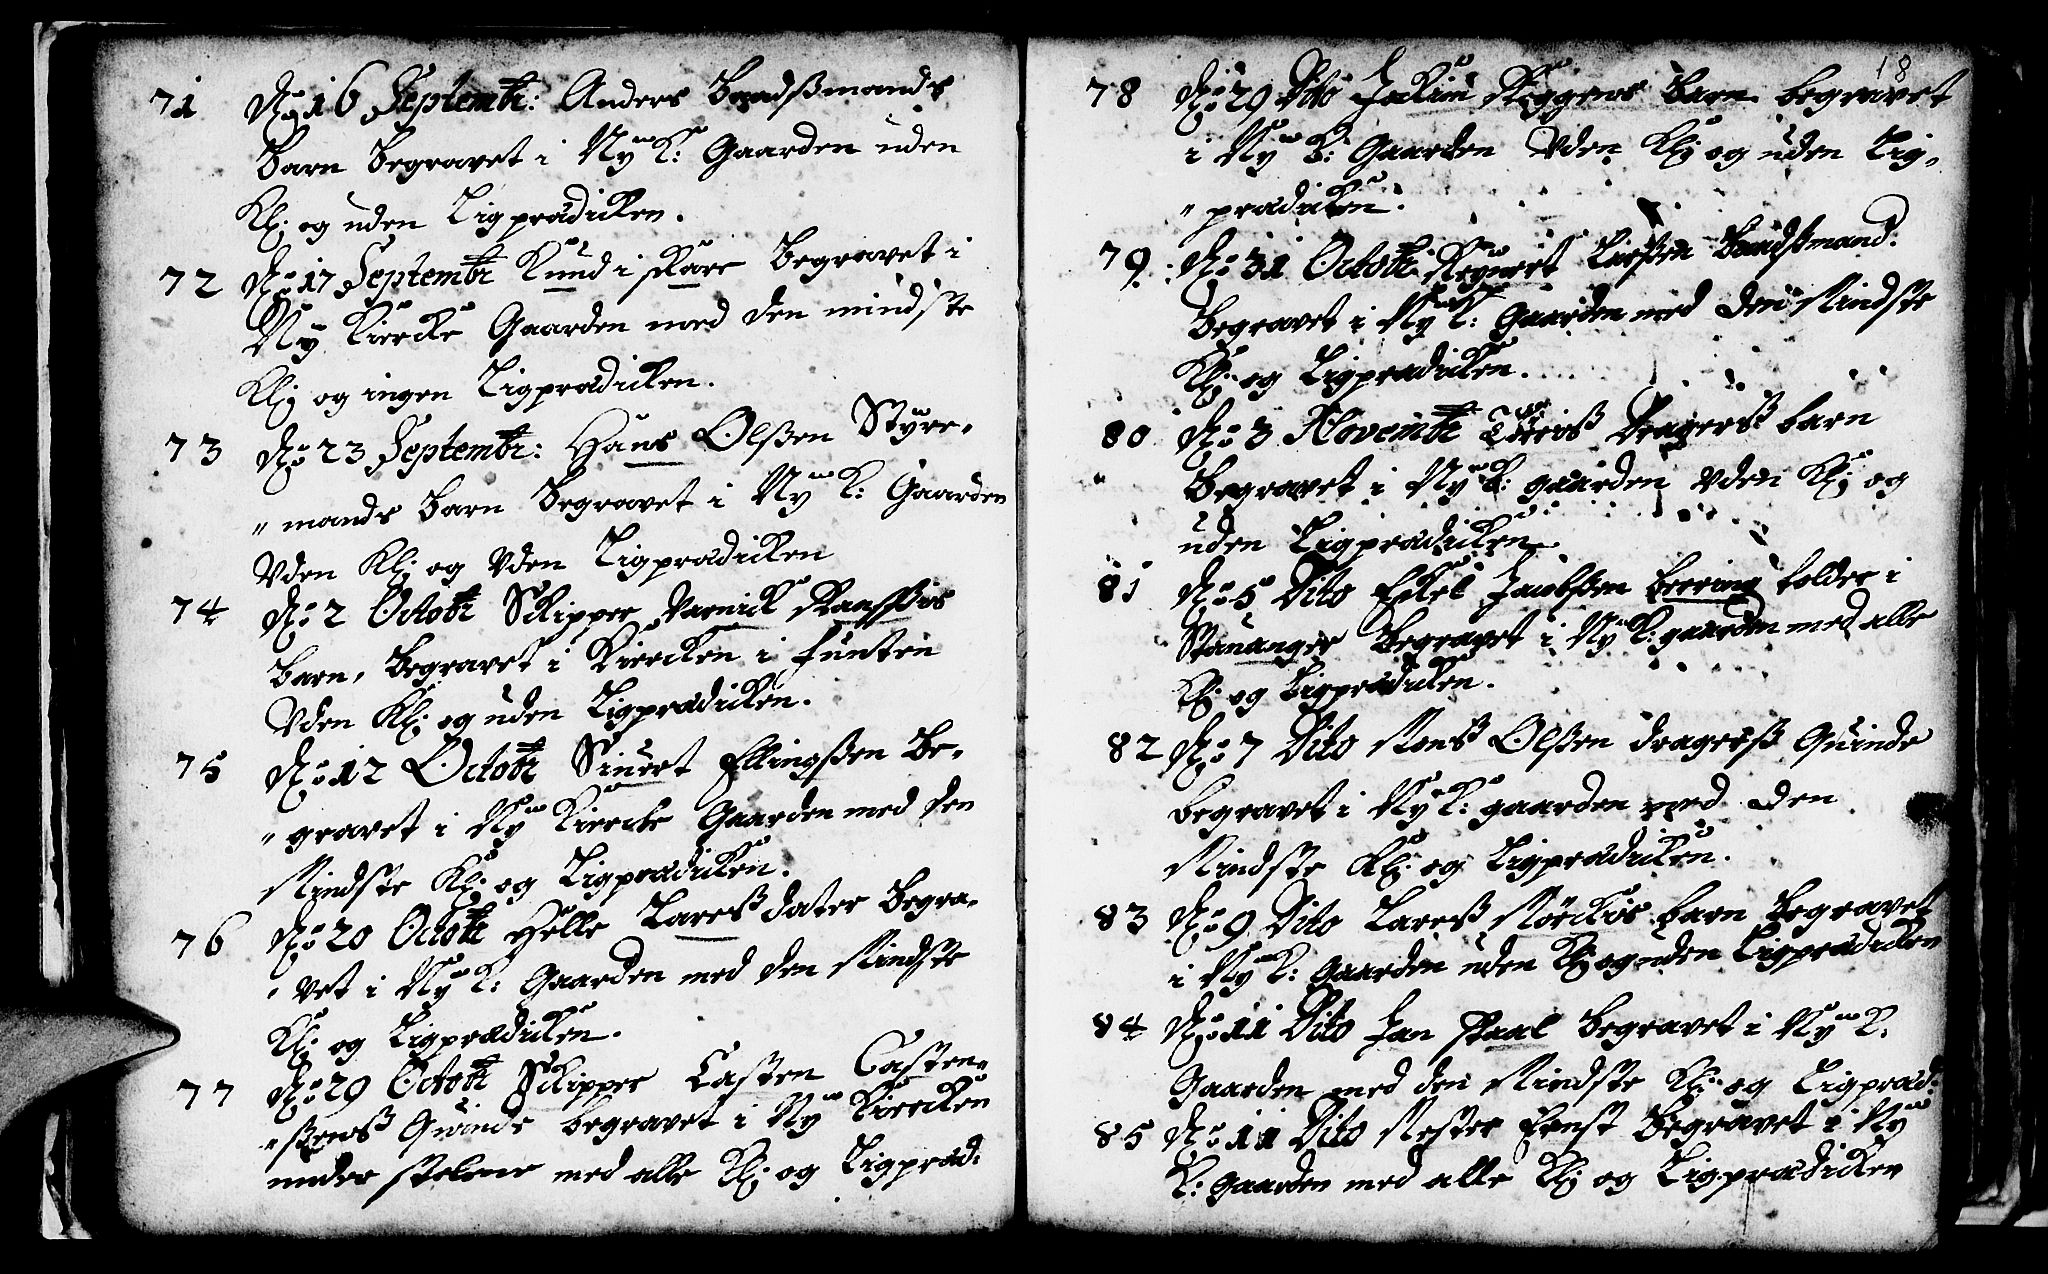 71 d: 16 Septembr: Anders Baadßmands
Barn Begravet i Ny K: Gaarden uden
Kl: og uden Ligprædicken.
72 d: 17 Septembr Knud i skare Begravet i
Ny Kircke Gaarden med den mindste
Kl: og ingen Ligprædicken.
73 d: 23 Septembr: Hans Olßen Styre„
„mands Barn Begravet i Ny K: Gaarden
Uden Kl: og Uden Ligprædicken
74 d: 2 Octobr Skipper Varnick
Barn, Begravet i Kircken i funten
Uden Kl: og uden Ligprædicken.
75 d: 12 Octobr Siuert Ellingßen Be„
„gravet i Ny Kircke Gaarden med den
Mindste Kl: og Ligprædicken.
76 d: 20 Octobr Helle Larß dater Begra„
„vet i Ny K: Gaarden med den Mindste
Kl: og Ligprædicken.
77 d: 29 Octobr Skipper Casten Casten„
„ßens Quinde begravet i Ny Kircken
under med alle Kl: og Ligpræd:
18
78 d: 29 Dito Jokum Barn begravet
i Ny K: Gaarden Uden Kl: og uden Lig„
„prædicken.
79 d: 31 Octobr Larßen Baadßmand.
Begravet i Ny K: Gaarden med den Mindste
Kl: og Ligprædicken.
80 d: 3 Novembr Dragerß barn
Begravet i Ny K: gaarden Uden Kl: og
uden Ligprædicken
81 d: 5 Dito Eskel Jacobßen tolder i
Stauanger Begravet i Ny K: gaarden med alle
Kl: og Ligprædicken.
82 d: 7 Dito Monß Olßen dragerß Quinde
begravet i Ny K: gaarden med den
Mindste Kl: og Ligprædicken.
83 d: 9 Dito Larß barn Begravet
i Ny K: Gaarden uden Kl: og uden Ligprædicken
84 d: 11 Dito Jan staal Begravet i Ny K.
Gaarden med den Mindste Kl: og Ligpræd:
85 d: 11 Dito Mester Ernst Begravet i Ny
K: gaarden med alle Kl: og Ligprædicken